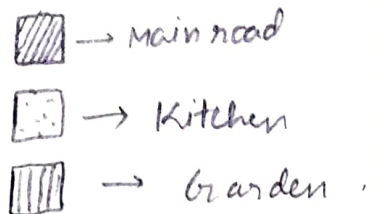 → Main road
→ Kitchen
→ Garden.